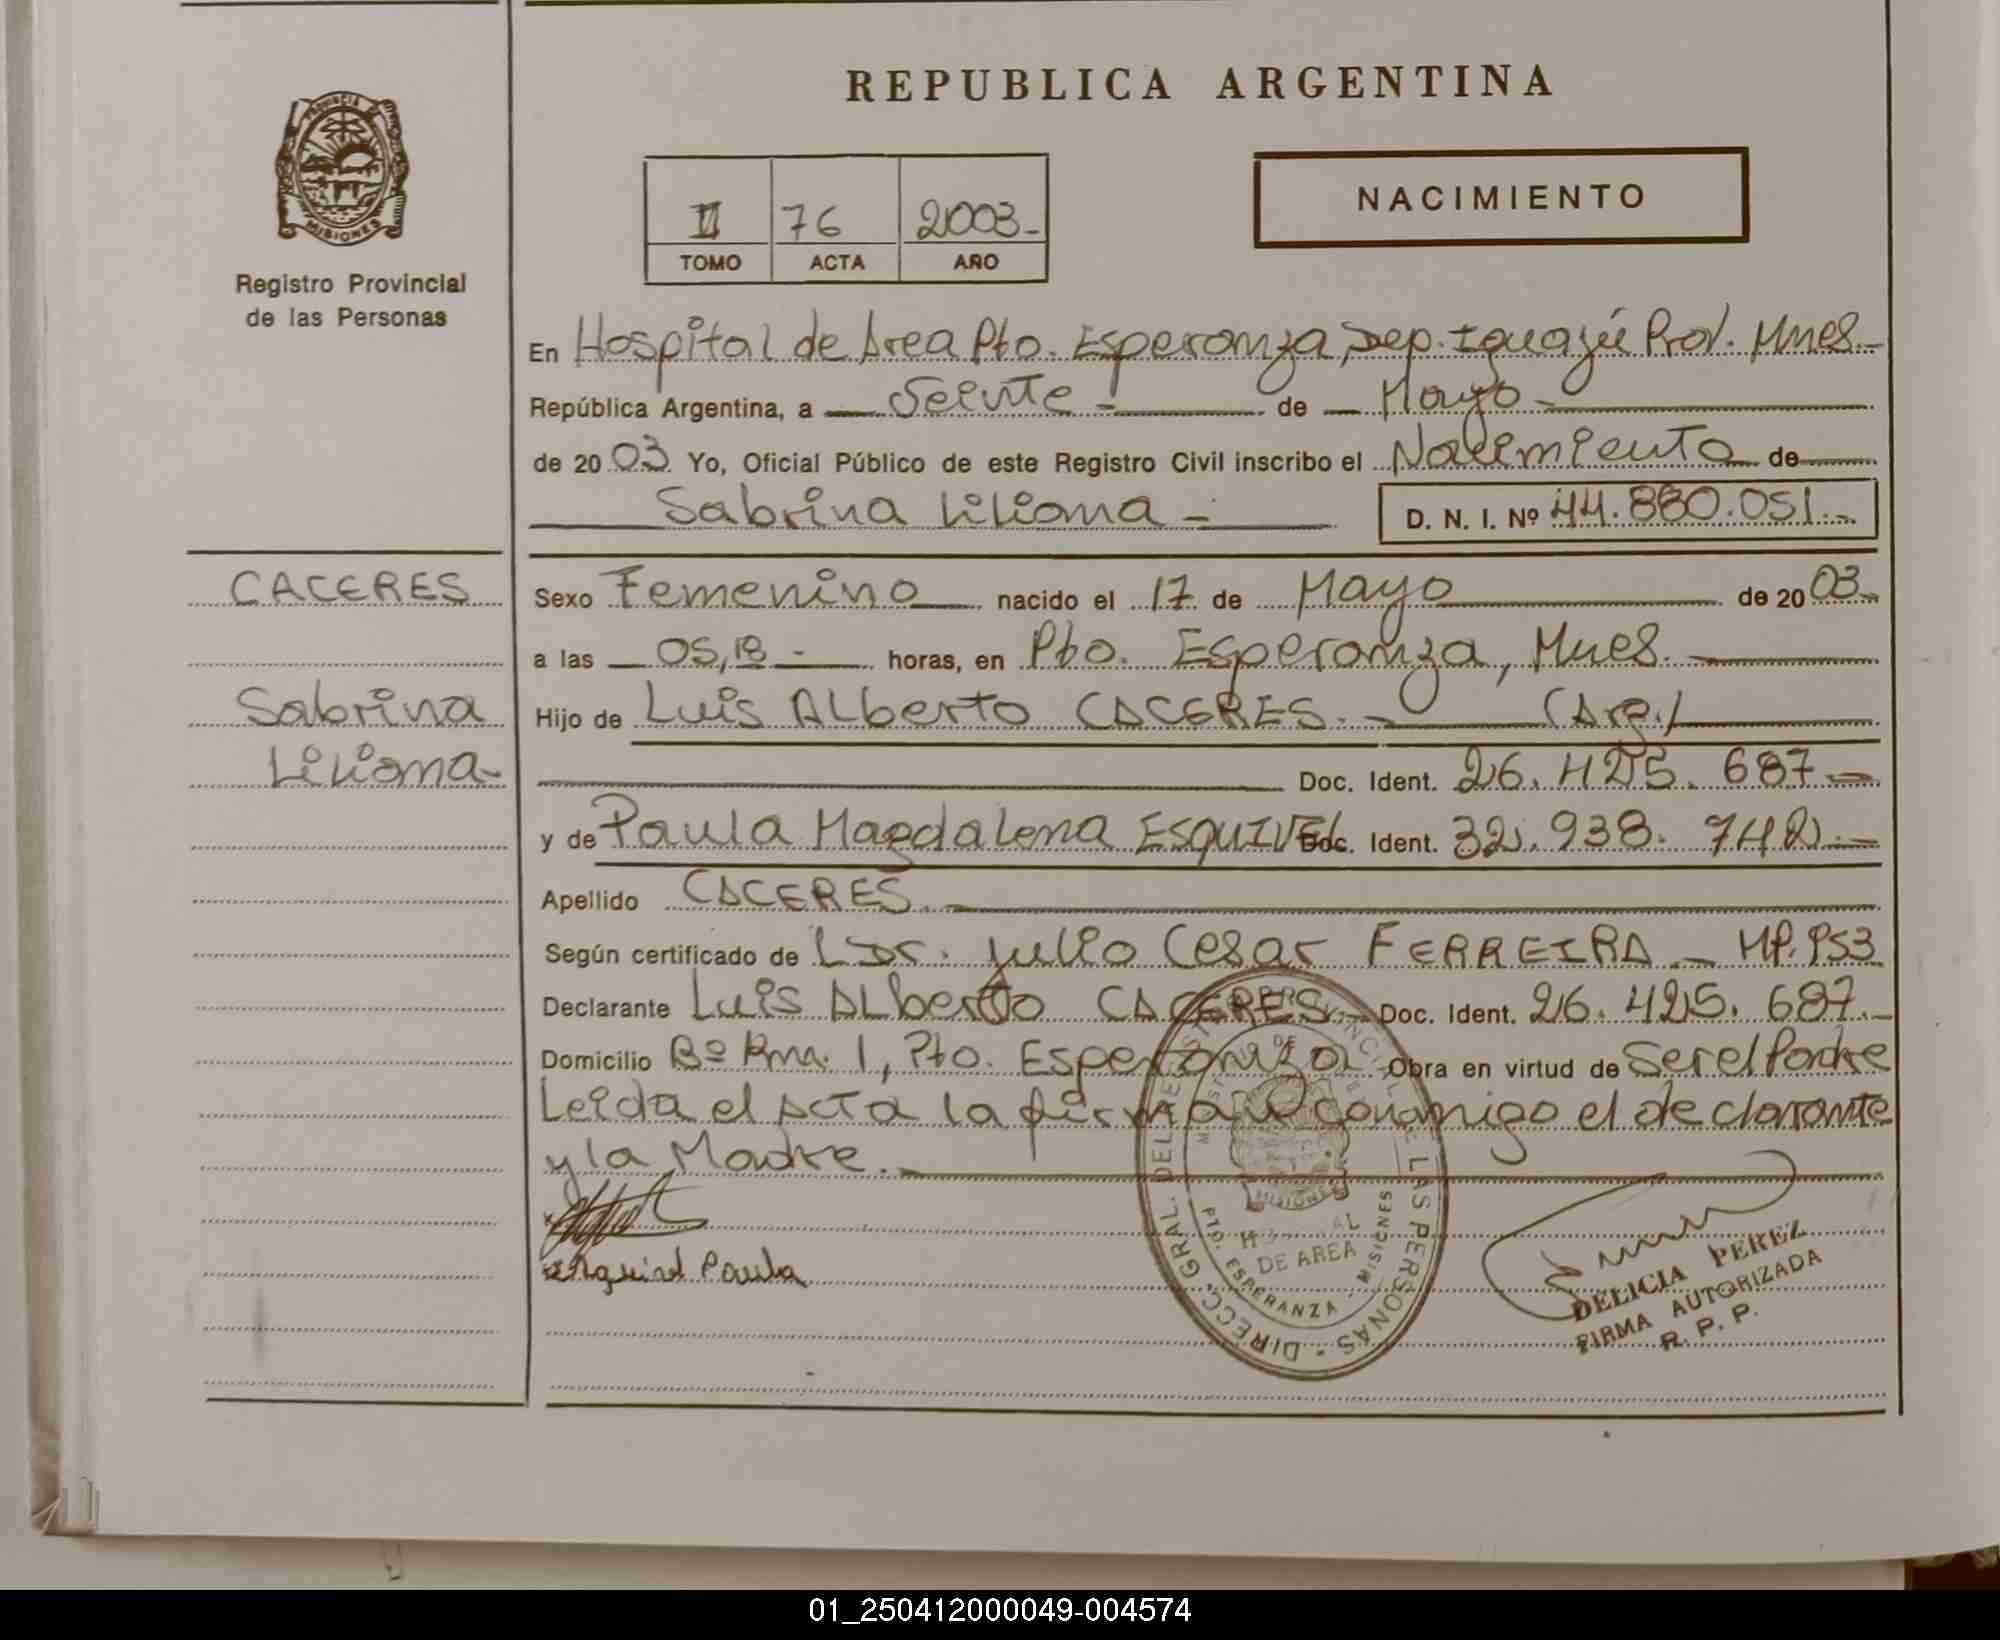 REPUBLICA ARGENTINA
PROVINCIA
MISIONES
Registro Provincial
de las Personas
II 76 2003.-
TOMO ACTA AÑO
NACIMIENTO
En Hospital de Area Pto. Esperanza, Dep. Iguazú Prov. Mnes.-
República Argentina, a Veinte - de Mayo -
de 2003. Yo, Oficial Público de este Registro Civil inscribo el Nacimiento de
Sabrina Liliana - D. N. I. Nº 44.880.051.-
CACERES
Sabrina
Liliana-
Sexo Femenino nacido el 17 de Mayo de 2003-
a las 05,18 - horas, en Pto. Esperanza, Mnes. -
Hijo de Luis Alberto CACERES. - (Arg.)
Doc. Ident. 26.425.687.-
y de Paula Magdalena ESQUIVEL Doc. Ident. 32.938.742.-
Apellido CACERES. -
Según certificado de Dr. Julio Cesar FERREIRA - MP.
Declarante Luis Alberto CACERES.- Doc. Ident. 26.425.687.-
Domicilio Bº 1, Pto. Esperanza Obra en virtud de Ser el Padre
Leida el Acta la firman conmigo el declarante
y la Madre. -
Esquivel Paula
DIRECC. GRAL. DEL REGISTRO PROVINCIAL DE LAS PERSONAS
MISIONES
HOSPITAL
DE AREA
PTO. ESPERANZA - MISIONES
DELICIA PEREZ
FIRMA AUTORIZADA
R. P. P.
01_250412000049-004574